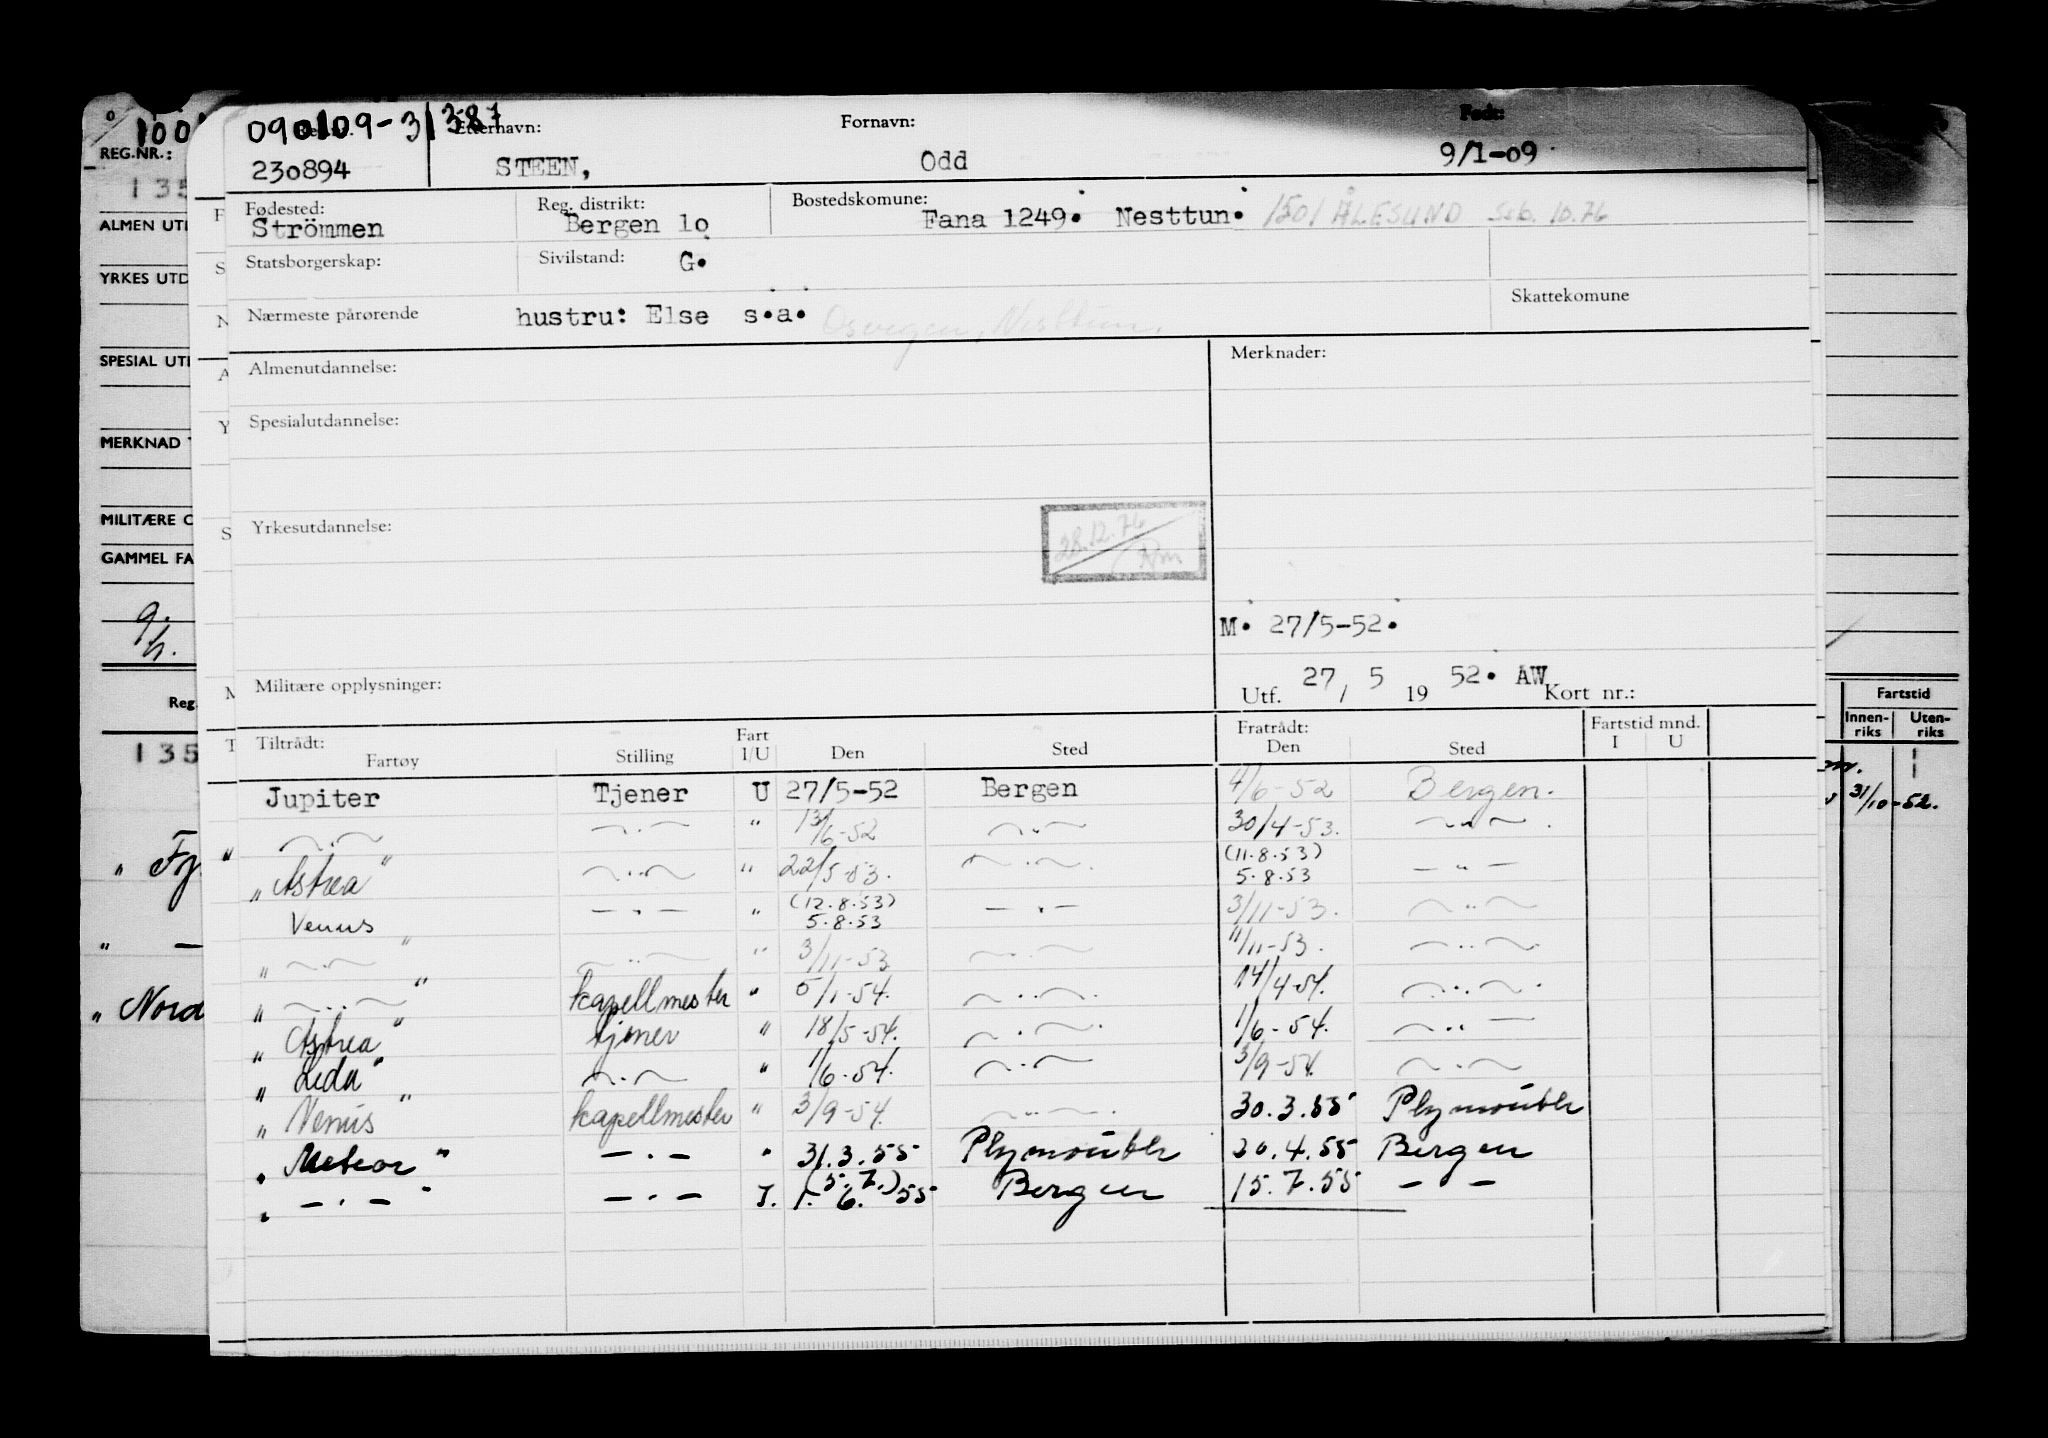 090109-31387
Reg.nr. Etternavn: Fornavn: Født:
230894 STEEN, Odd 9/1-09
Fødested: Reg. distrikt: Bostedskomune:
Strömmen Bergen lo Fana 1249. Nesttun. 1501 ÅLESUND 10.76
Statsborgerskap: Sivilstand: G.
Nærmeste pårørende hustru: Else s.a. Osvegen, Nesttun. Skattekomune
Almenutdannelse: Merknader:
Spesialutdannelse:
Yrkesutdannelse: 28.12.76
M. 27/5-52.
Militære opplysninger: Utf. 27 / 5 19 52. AW Kort nr.:
Tiltrådt: Fratrådt: Fartstid mnd.
Fartøy Stilling Fart I/U Den Sted Den Sted I U
Jupiter Tjener U 27/5-52 Bergen 4/6-52 Bergen.
— . — — . — " 13/6-52 — " — 30/4-53. — " — .
„ Astrea " — . — " 22/5-53. — . — . (11.8.53) 5.8.53 — " —
Venus — . — " (12.8.53) 5.8.53 — . — 3/11-53. — " —
„ — . — " — . — " 3/11-53 — . — 11/11-53. — .. —
„ — .. — " kapellmester " 5/1-54. — .. — . 14/4-54. — .. — .
„ Astrea " tjener " 18/5-54. — . — . 1/6-54. — .. —
„ Leda " — . — " 1/6-54. — . — 3/9-54. — . —
„ Venus " kapellmester " 3/9-54. — .. — . 30.3.55 Plymouth
„ Meteor " — . — " 31.3.55 Plymouth 20.4.55 Bergen
„ — . — " — . — I. (5.7.) 1. 6. 55 Bergen 15.7.55 — —
REG.NR.:
135
ALMEN UT
YRKES UTD
SPESIAL UT
MERKNAD
MILITÆRE O
GAMMEL FA
g.
h.
Reg.
135
„ Fj
" —
„ Nord
Fartstid
Innen-riks Uten-riks
31/10-52.